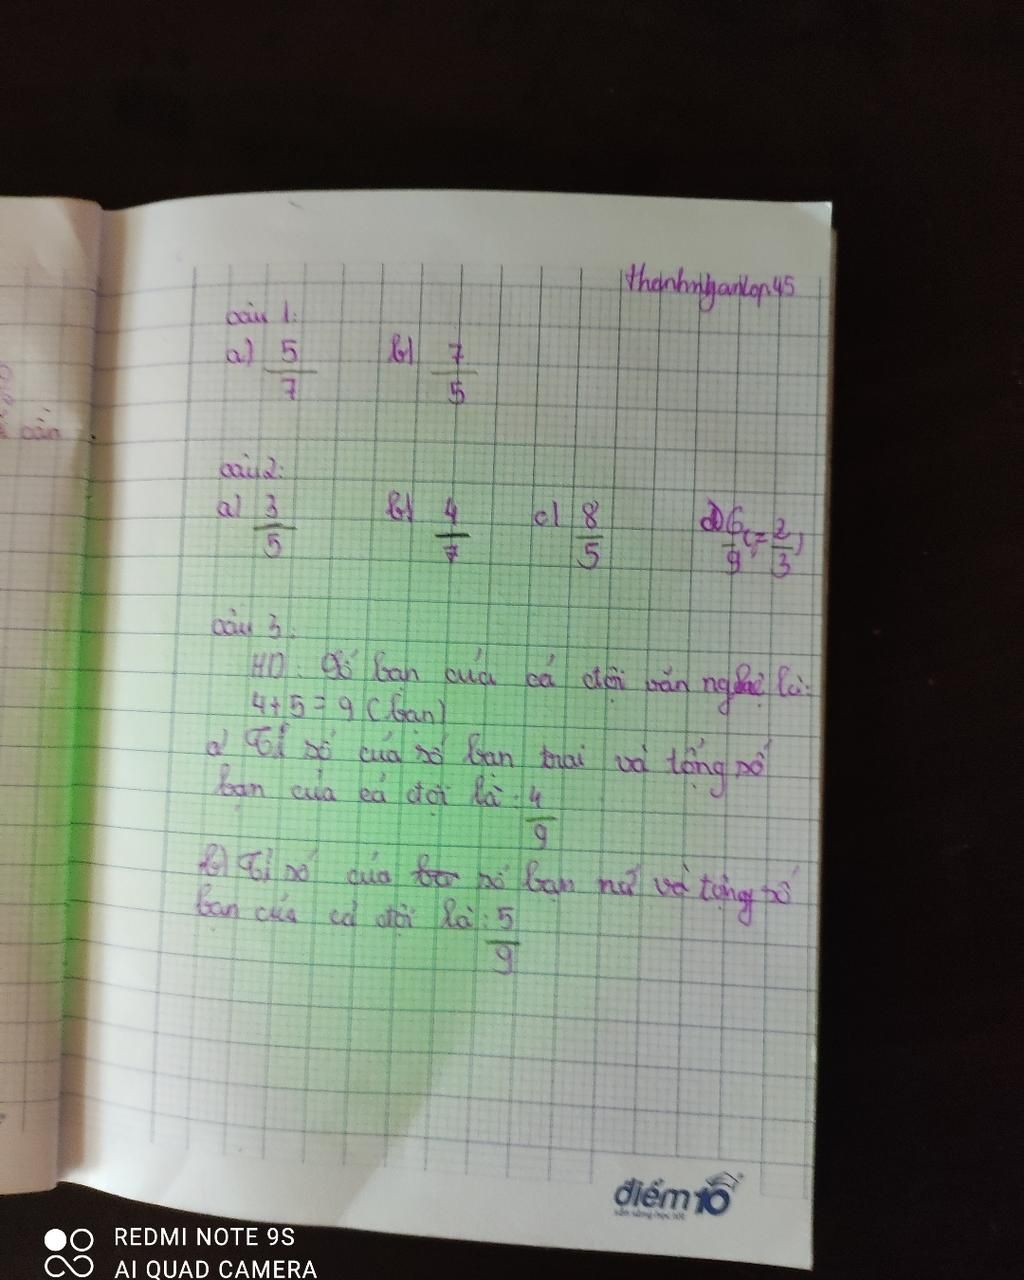 thanhnganlop45
câu 1:
a) 5/7 b) 7/5
câu 2:
a) 3/5 b) 4/7 c) 8/5 d) 6/9 (= 2/3)
câu 3:
HD: Số bạn của cả đội văn nghệ là:
4+5=9 (bạn)
a) Tỉ số của số bạn trai và tổng số
bạn của cả đội là: 4/9
b) Tỉ số của số bạn nữ và tổng số
bạn của cả đội là: 5/9
cản
điểm 10
REDMI NOTE 9S
AI QUAD CAMERA